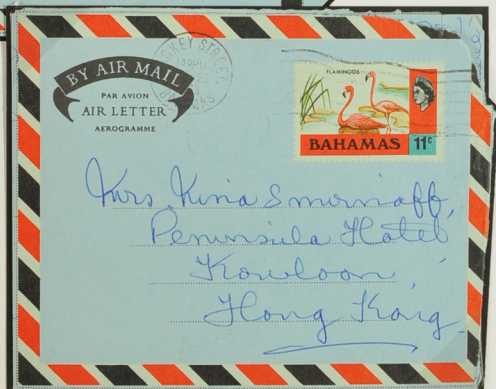 BY AIR MAIL
PAR AVION
AIR LETTER
AEROGRAMME
FLAMINGOS
BAHAMAS 11c
Mrs Kira Smirnoff,
Peninsula Hotel
Kowloon,
Hong Kong.